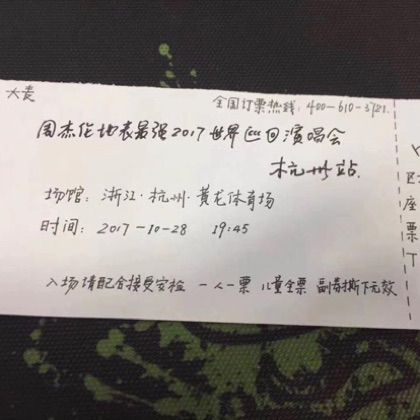 大麦
全国订票热线：400-610-3721.
周杰伦地表最强2017世界巡回演唱会
杭州站
场馆：浙江·杭州·黄龙体育场
时间：2017-10-28 19:45
入场请配合接受安检 一人一票 儿童全票 副券撕下无效
座
票